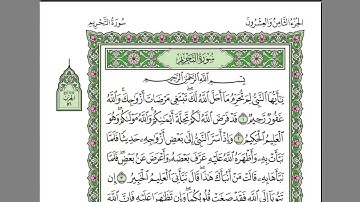 سُورَةُ التَّحْرِيمِ
الجُزْءُ الثَّامِنُ وَالعِشْرُونَ
سُورَةُ التَّحْرِيمِ
بِسْمِ اللَّهِ الرَّحْمَٰنِ الرَّحِيمِ
يَا أَيُّهَا النَّبِيُّ لِمَ تُحَرِّمُ مَا أَحَلَّ اللَّهُ لَكَ تَبْتَغِي مَرْضَاتَ أَزْوَاجِكَ وَاللَّهُ
غَفُورٌ رَّحِيمٌ ١ قَدْ فَرَضَ اللَّهُ لَكُمْ تَحِلَّةَ أَيْمَانِكُمْ وَاللَّهُ مَوْلَاكُمْ وَهُوَ
الْعَلِيمُ الْحَكِيمُ ٢ وَإِذْ أَسَرَّ النَّبِيُّ إِلَىٰ بَعْضِ أَزْوَاجِهِ حَدِيثًا فَلَمَّا
نَبَّأَتْ بِهِ وَأَظْهَرَهُ اللَّهُ عَلَيْهِ عَرَّفَ بَعْضَهُ وَأَعْرَضَ عَن بَعْضٍ فَلَمَّا
نَبَّأَهَا بِهِ قَالَتْ مَنْ أَنبَأَكَ هَٰذَا قَالَ نَبَّأَنِيَ الْعَلِيمُ الْخَبِيرُ ٣ إِن
تَتُوبَا إِلَى اللَّهِ فَقَدْ صَغَتْ قُلُوبُكُمَا وَإِن تَظَاهَرَا عَلَيْهِ فَإِنَّ اللَّهَ